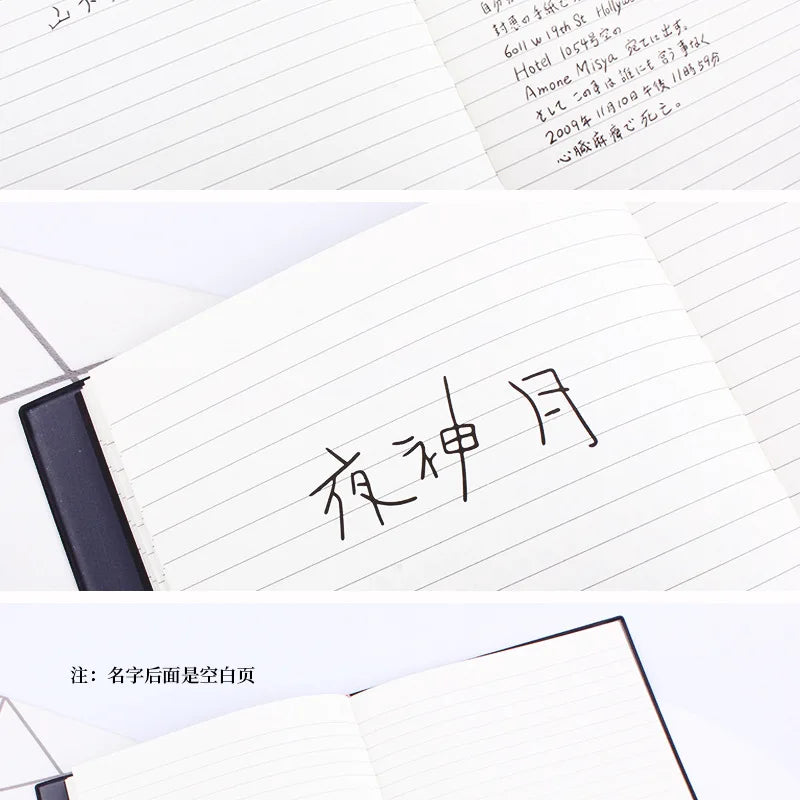 封悪の手紙で
6011 w 19th St Hollywo
Hotel 1054号室の
Amone Misya 宛てに出す。
そして この事は誰にも言う事なく
2009年11月10日午後11時59分
心臓麻痺で死亡。
夜神月
注：名字后面是空白页